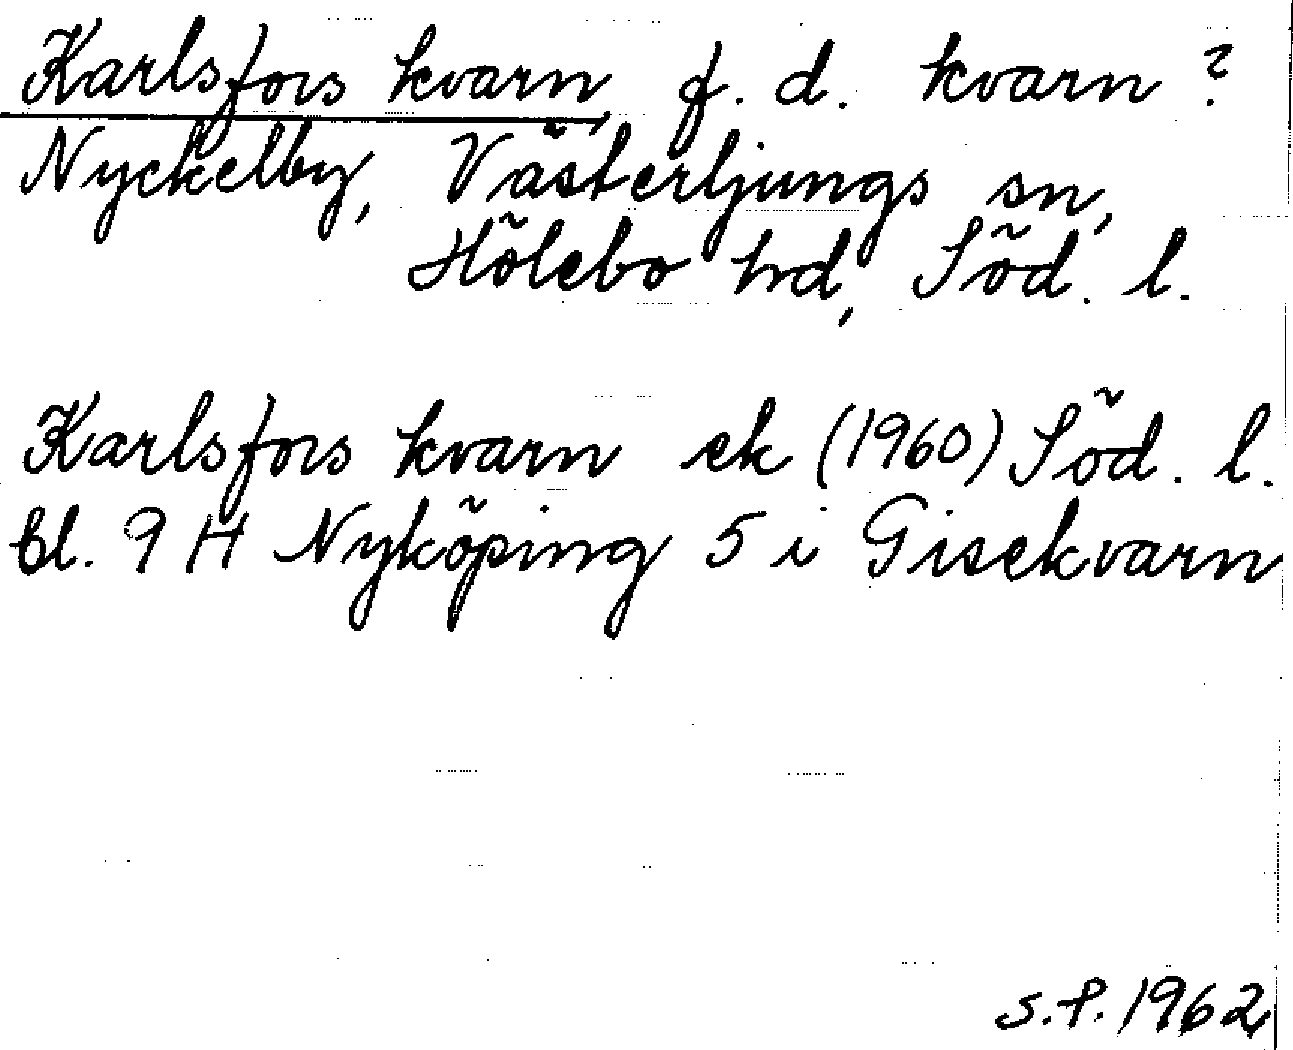 Karlsfors kvarn, f. d. kvarn ?
Nyckelby, Västerljungs sn,
Hölebo hd, Söd. l.
Karlsfors kvarn ek (1960) Söd. l.
bl. 9 H Nyköping 5 i Gisekvarn
S.P. 1962